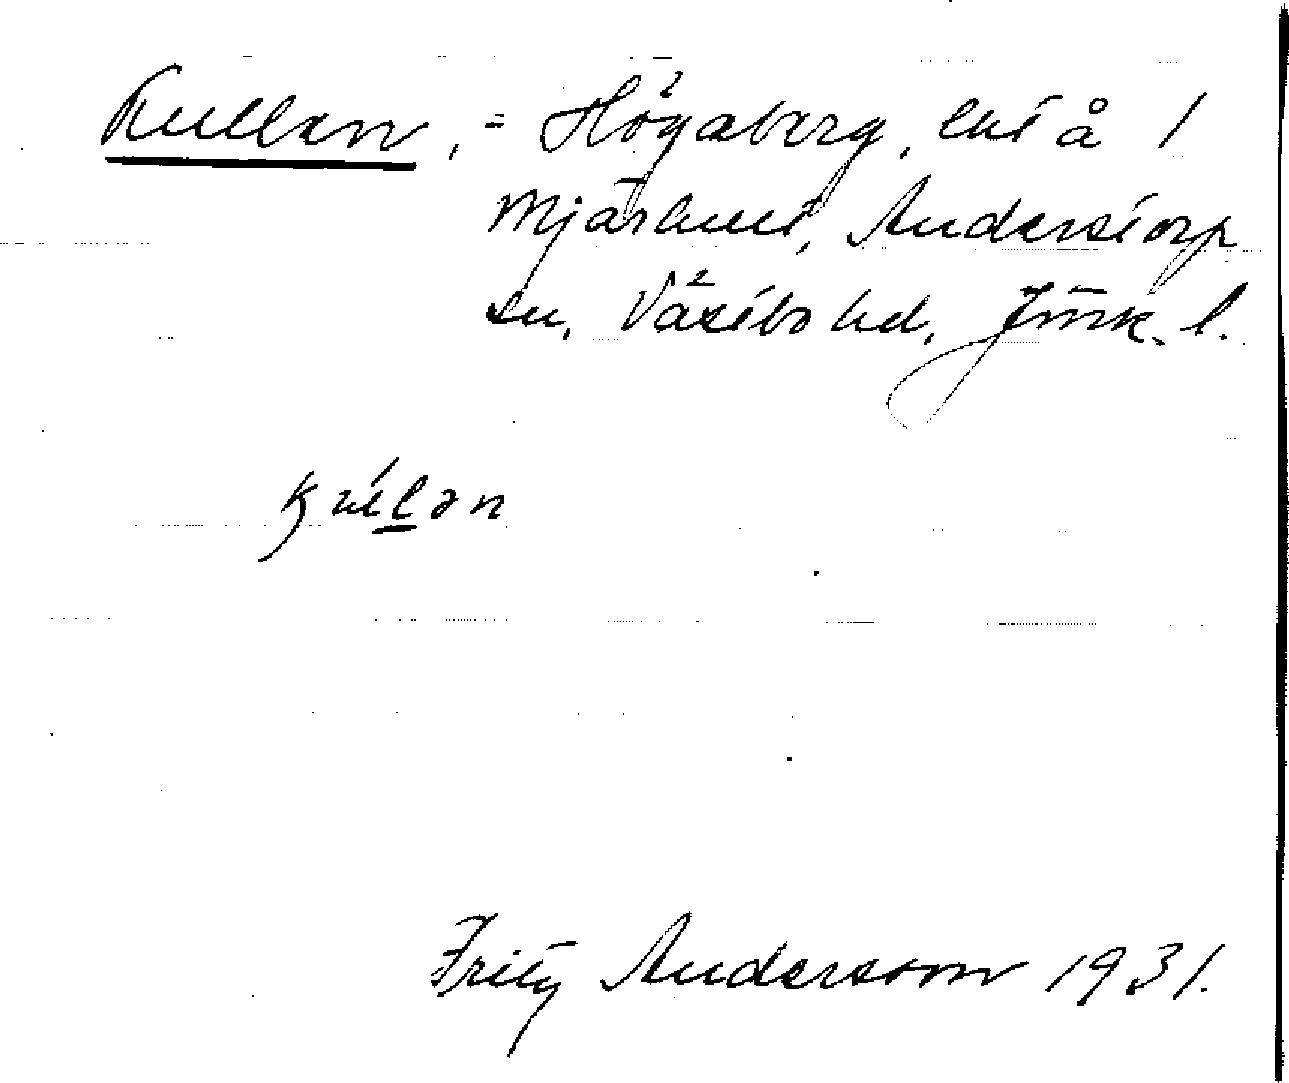 Kullen, = Högaberg, lht å 1
Mjärhult, Anderstorp
sn, Västbo hd, Jönk. l.
kúlən
Fritz Andersson 1931.